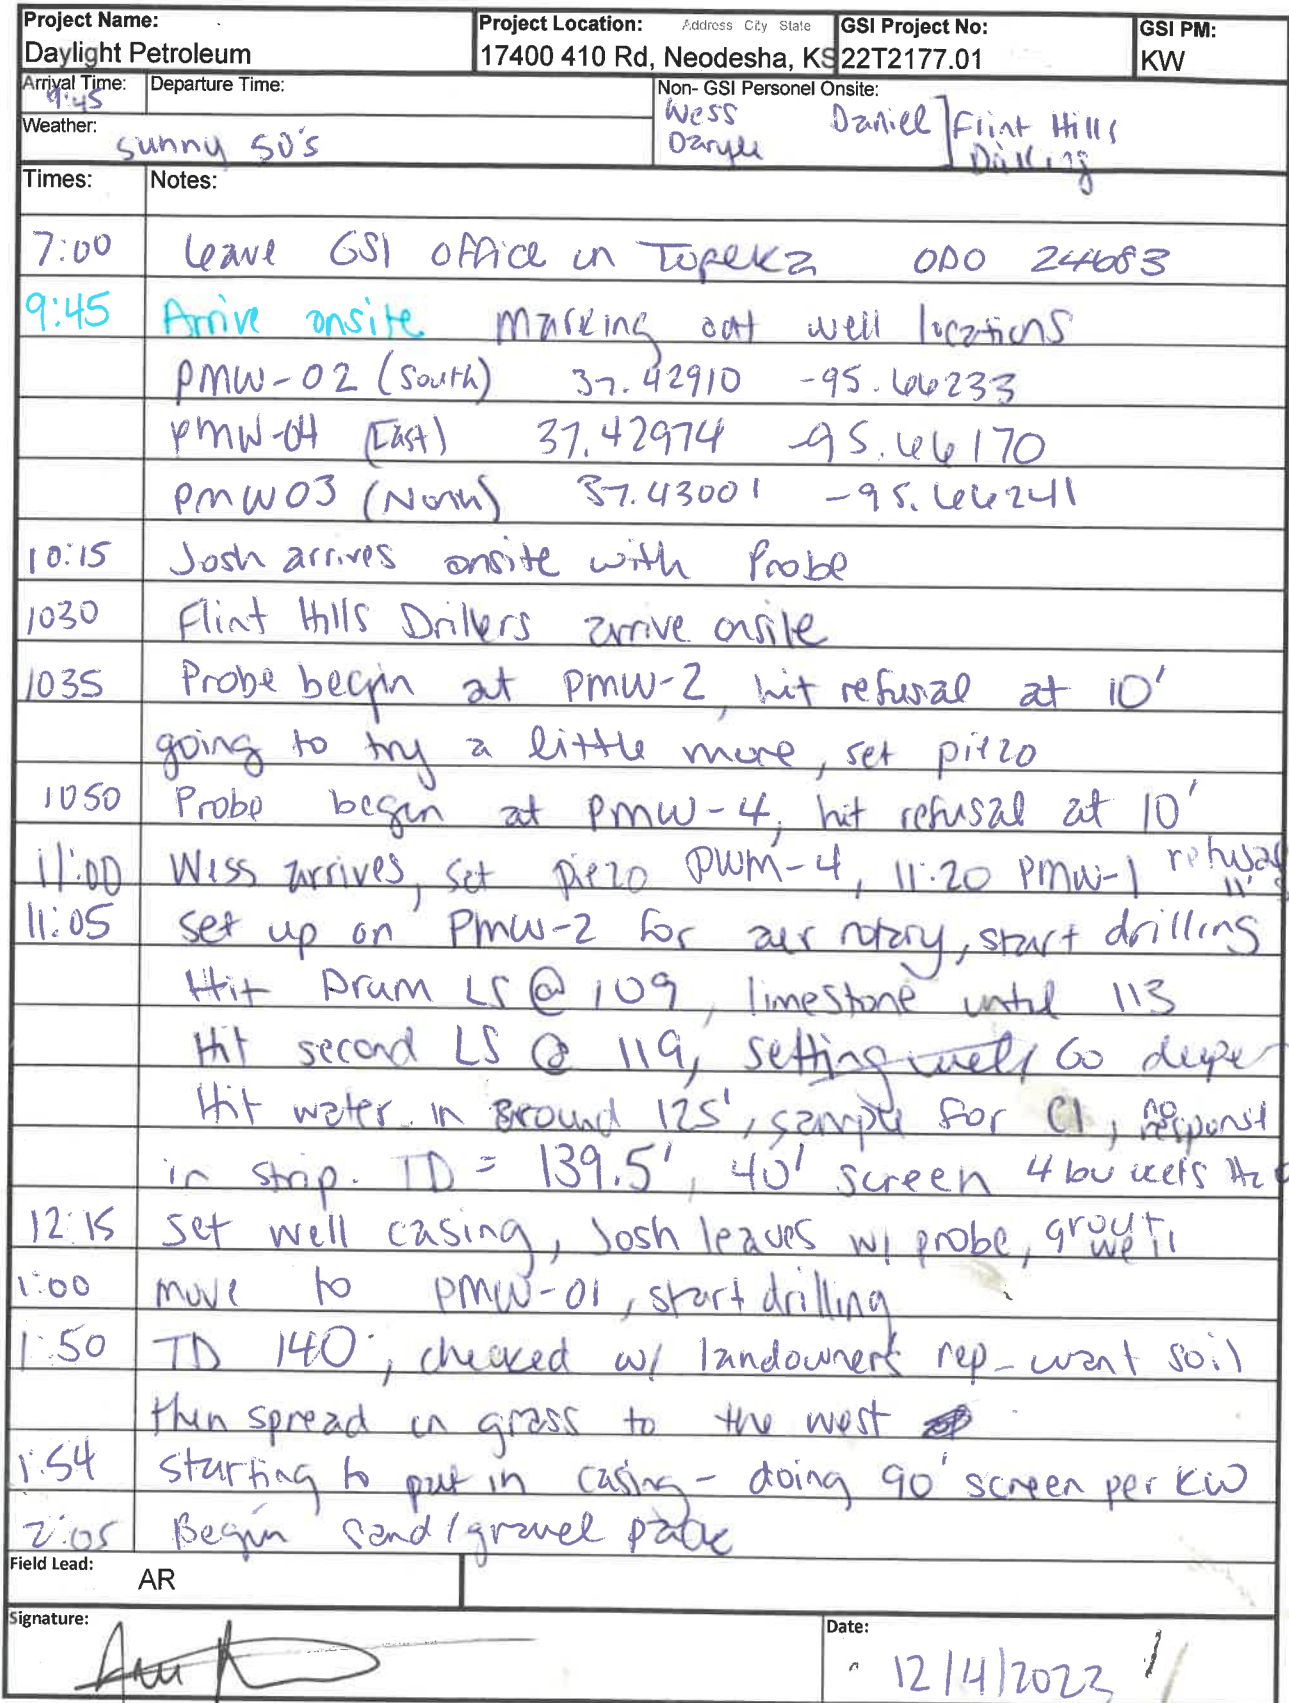 Project Name:
Daylight Petroleum
Project Location: Address City State
17400 410 Rd, Neodesha, KS
GSI Project No:
22T2177.01
GSI PM:
KW
Arrival Time:
9:45
Departure Time:
Non- GSI Personel Onsite:
Wess Daniel ] Flint Hills
Daryle Drilling
Weather:
sunny 50's
Times: Notes:
7:00 leave GSI office in Topeka ODO 24683
9:45 Arrive onsite Marking out well locations
PMW-02 (South) 37.42910 -95.66233
PMW-04 (East) 37.42974 -95.66170
PMW03 (North) 37.43001 -95.66241
10:15 Josh arrives onsite with Probe
1030 Flint Hills Drillers arrive onsite
1035 Probe begin at PMW-2, hit refusal at 10'
going to try a little more, set piezo
1050 Probe begin at PMW-4, hit refusal at 10'
11:00 Wess arrives, set piezo PWM-4, 11:20 PMW-1 refusal 11'
11:05 set up on PMW-2 for air rotary, start drilling
Hit Drum LS @ 109, limestone until 113
Hit second LS @ 119, setting well, Go deeper
Hit water in around 125', sample for Cl, no response
in strip. TD = 139.5', 40' screen 4 buckets H2O
12:15 set well casing, Josh leaves w/ probe, grout well
1:00 move to PMW-01, start drilling
1:50 TD 140', checked w/ landowners rep - want soil
then spread in grass to the west
1:54 starting to put in casing - doing 90' screen per KW
2:05 Begin sand/gravel pack
Field Lead:
AR
Signature:
Date:
12/14/2022